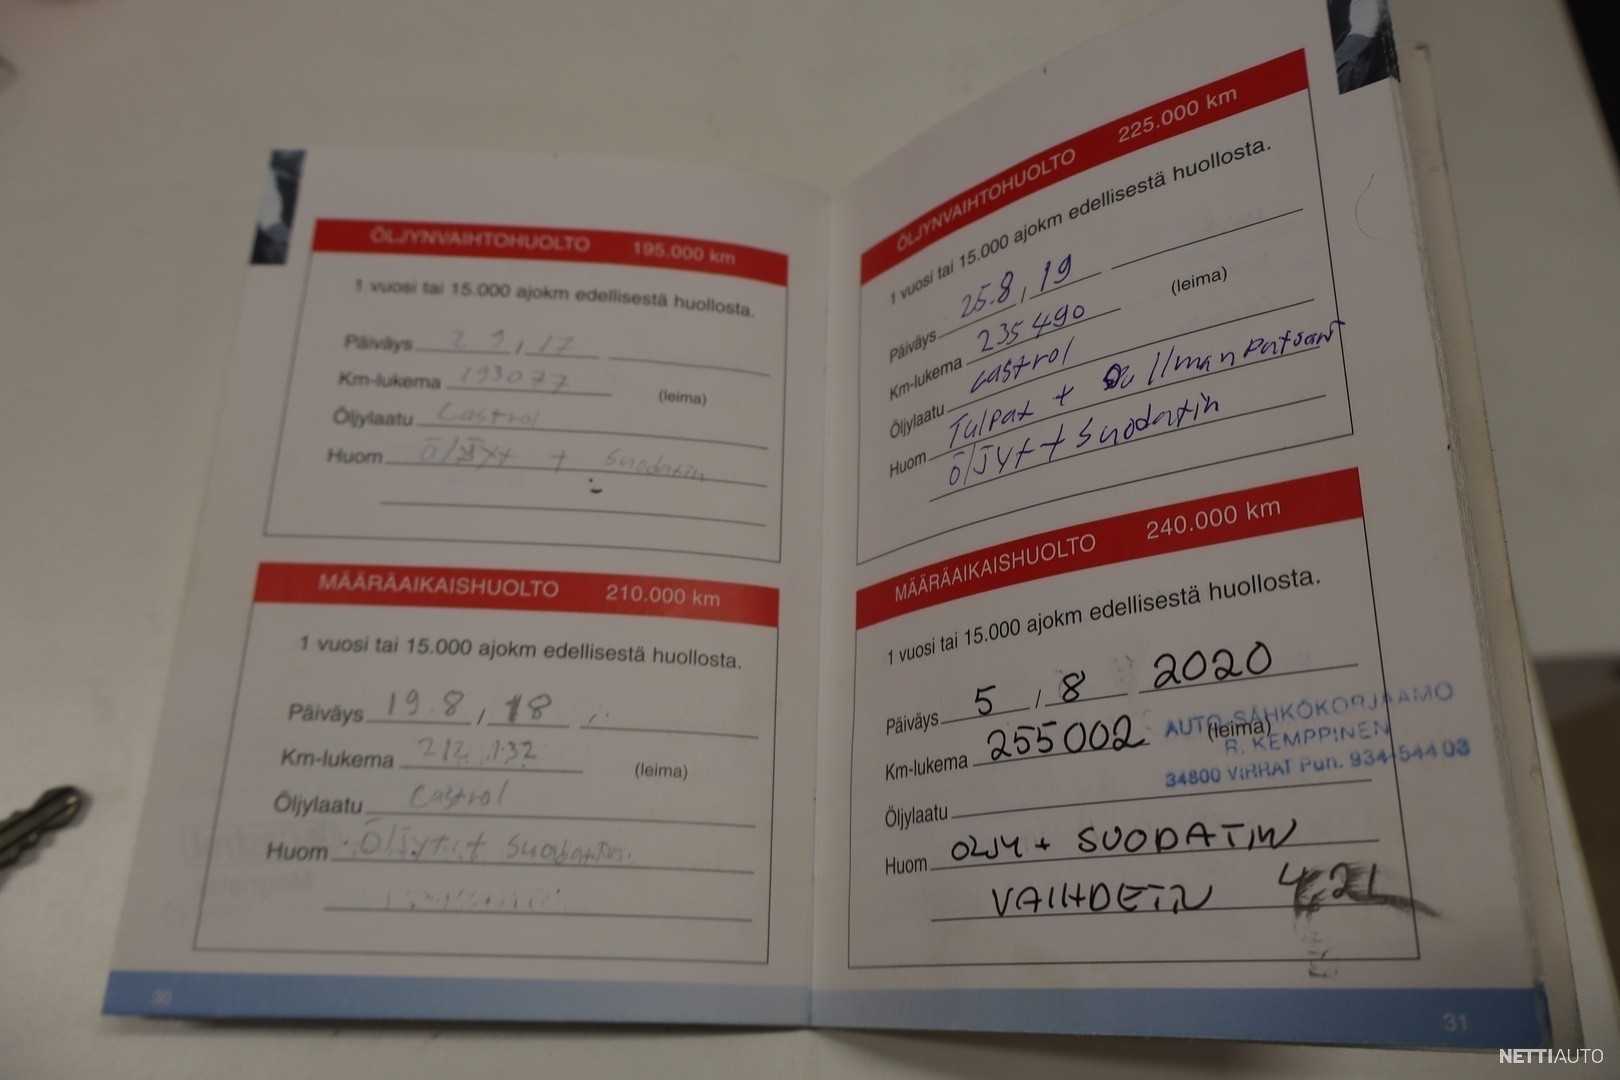 ÖLJYNVAIHTOHUOLTO 195.000 km
1 vuosi tai 15.000 ajokm edellisestä huollosta.
Päiväys 2 9, 17
Km-lukema 193077
(leima)
Öljylaatu Castrol
Huom Öljyt + Suodatin
MÄÄRÄAIKAISHUOLTO 210.000 km
1 vuosi tai 15.000 ajokm edellisestä huollosta.
Päiväys 19.8, 18
Km-lukema 212.132
(leima)
Öljylaatu Castrol
Huom Öljyt + Suodatin.
30
ÖLJYNVAIHTOHUOLTO 225.000 km
1 vuosi tai 15.000 ajokm edellisestä huollosta.
Päiväys 25.8, 19
Km-lukema 235490
(leima)
Öljylaatu Castrol
Huom Tulpat + Ilmanpatsari
Öljyt + Suodatin
MÄÄRÄAIKAISHUOLTO 240.000 km
1 vuosi tai 15.000 ajokm edellisestä huollosta.
Päiväys 5, 8 2020
Km-lukema 255002
(leima)
AUTO-SÄHKÖKORJAAMO
R. KEMPPINEN
34800 VIRRAT Puh. 934-544 03
Öljylaatu
Huom OLJY + SUODATIN
VAIHDETTU 4,2L
31
NETTIAUTO